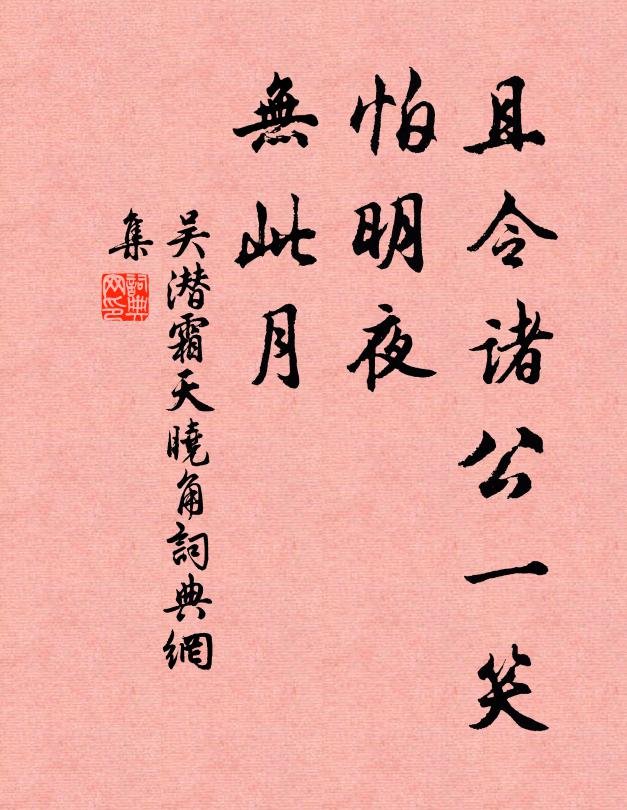 且令诸公一笑
怕明夜
無此月
吴潜霜天曉角詞典網
集
詞典
网印